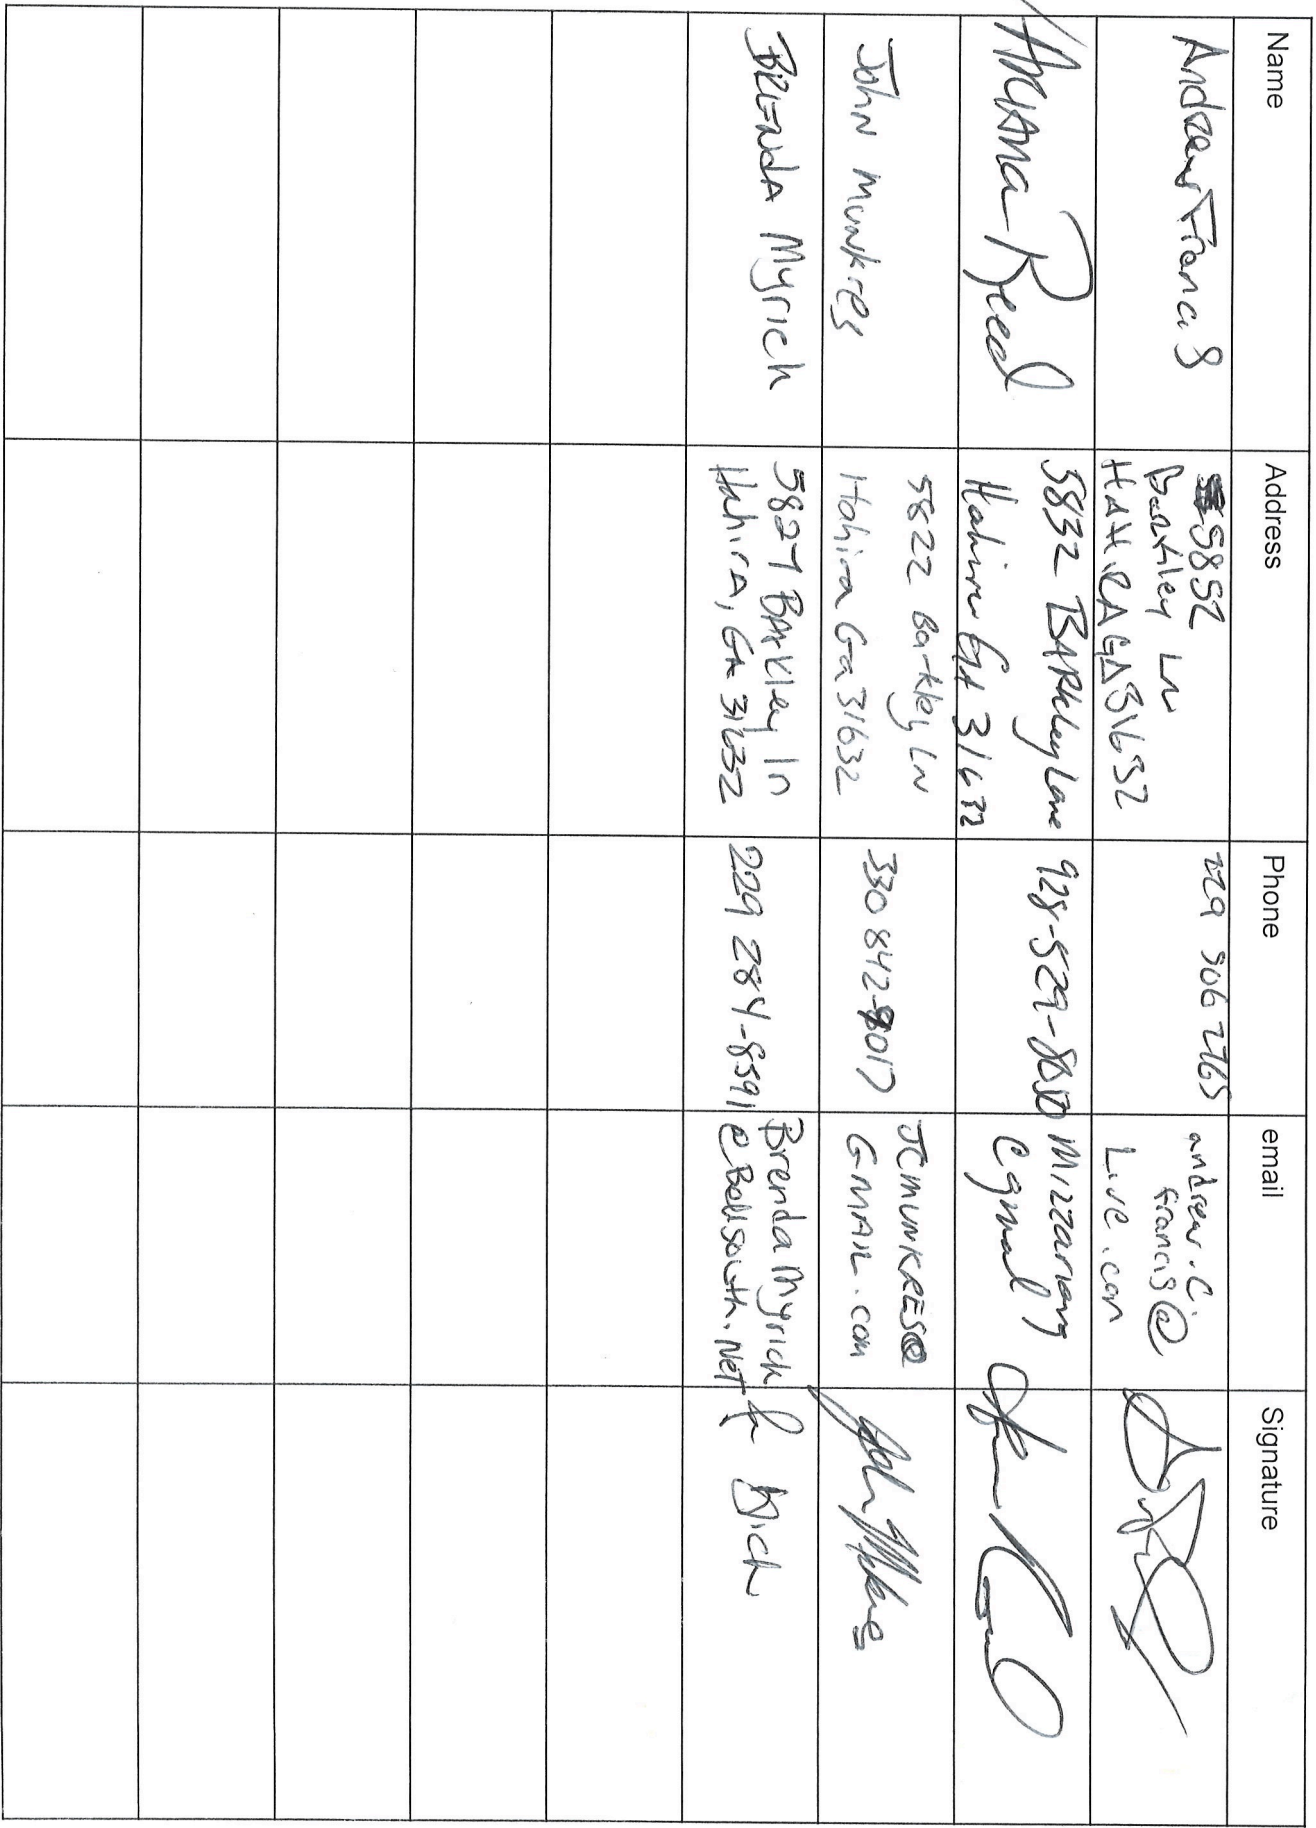 Name Address Phone email Signature
Andrew Francis
5852
Barkley LN
HAHIRA GA 31632
229 506 2765
andrew.c.
francis@
Live.com
Ariana Reed
5832 BARKley Lane
Hahira GA 31632
928-529-8050
Mizzariana
@gmail
John Munkres
5822 Barkley LN
Hahira Ga 31632
330 842-9017
JCMUNKRES@
GMAIL.com
BRENDA Myrick
5827 BArkley ln
Hahira, GA 31632
229 284-8591
BrendaMyrick
@Bellsouth.Net